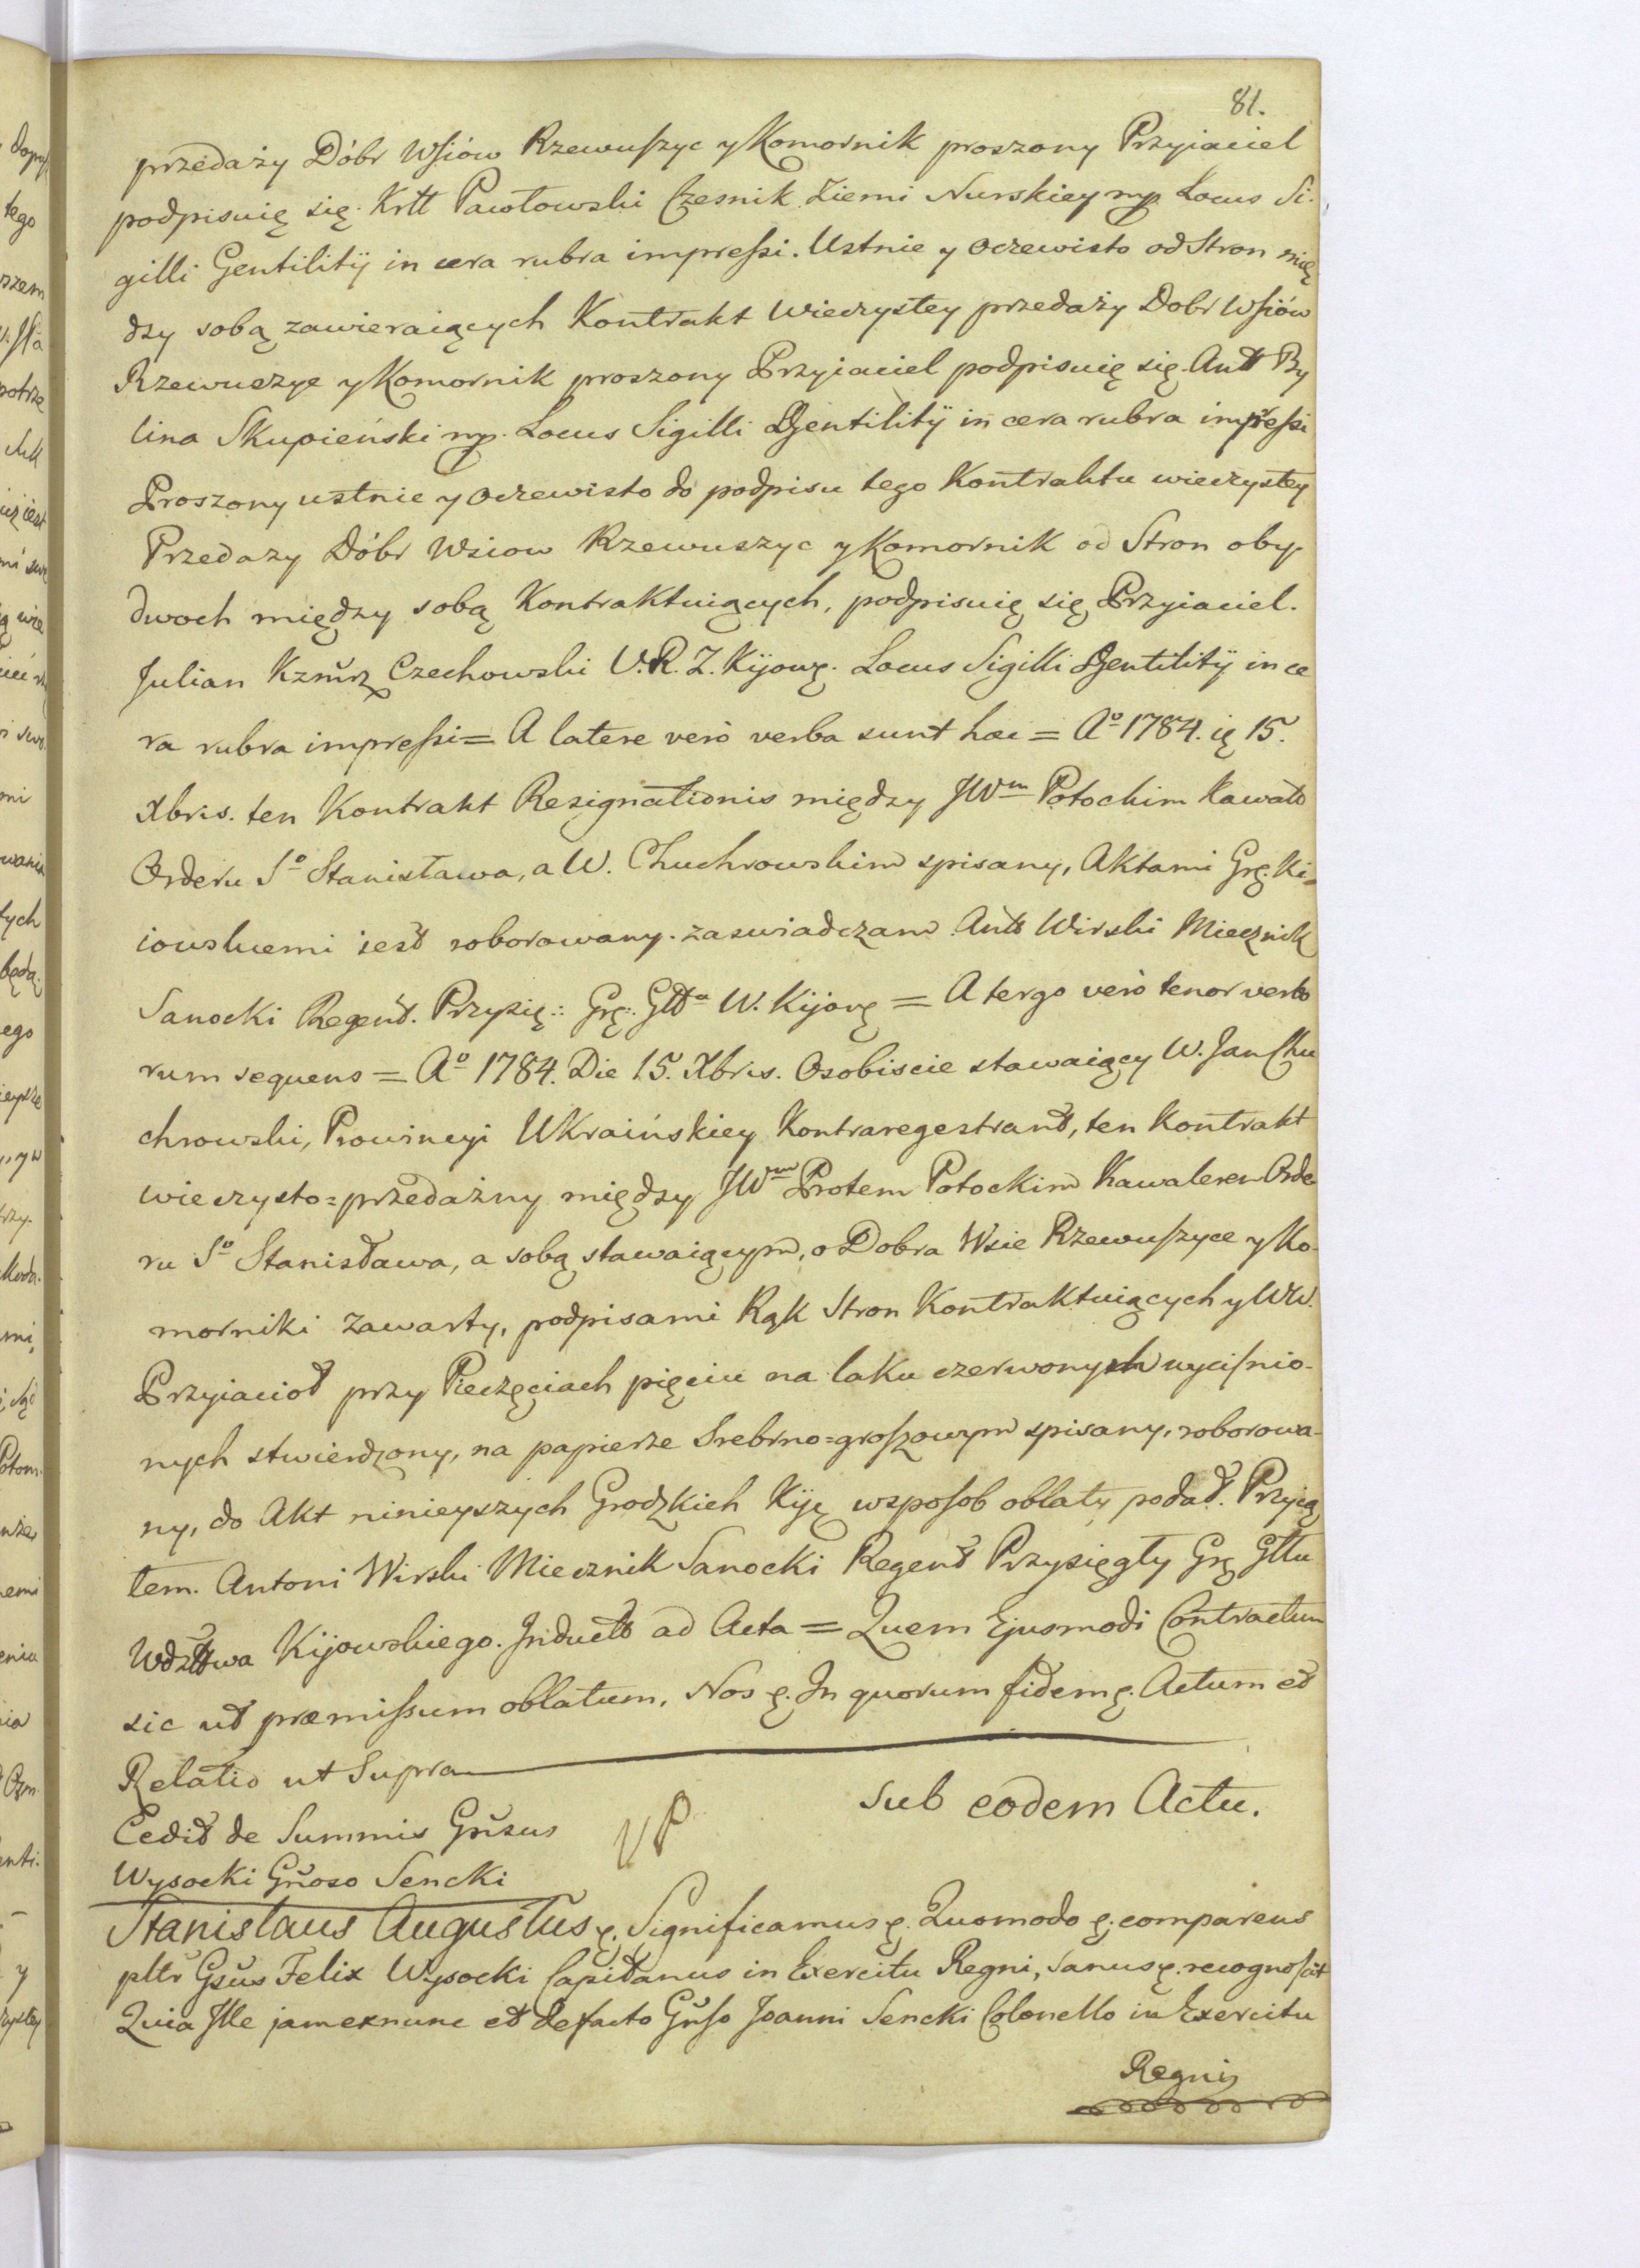 81.
przedaży Dóbr Wsiów Rzewuszyc y Komornik proszony Przyiaciel
podpisuię się. Krtt Pawłowski Czesnik Ziemi Nurskiey mp. Locus Si-
gilli Gentilitÿ in cera rubra impressi. Ustnie y oczewisto od Stron mię
dzy sobą zawieraiących Kontrakt wieczystey przedaży Dobr Wsiów
Rzewuszyc y Komornik proszony Przyiaciel podpisuię się. Antt By
lina Skupieński mp. Locus Sigilli Gentilitÿ in cera rubra impressi
Proszony ustnie y oczewisto do podpisu tego Kontraktu wieczystey
Przedazy Dóbr Wsiow Rzewuszyc y Komornik od Stron oby-
dwoch między sobą Kontraktuiących, podpisuię się Przyiaciel.
Julian Kzmrz Czechowski V. R. Z. Kijowę. Locus Sigilli Gentilitÿ in ce
ra rubra impressi = A latere verò verba sunt hæc = Aº 1784. ię 15.
Xbris. ten Kontrakt Resignationis między JWm Potockim Kawalr
Orderu Sº Stanisława, a W. Chuchrowskim spisany, Aktami Grę. Ki=
iowskiemi iest roborowany. zaswiadczam Antt Wirski Miecznik
Sanocki Regent. Przysię: Grę: Gtta W. Kijowę = A tergo verò tenor verbo
rum sequens = Aº 1784. Die 15. Xbris. Osobiscie stawaiący W. Jan Chu
chrowski, Prowincyi Ukraińskiey Kontraregestrant, ten Kontrakt
wieczysto=przedażny między JWm Protem Potockim Kawalerem Orde
ru Sº Stanisława, a sobą stawaiącym, o Dobra Wsie Rzewuszyce y Ko-
morniki zawarty, podpisami Rąk Stron Kontraktuiących y WW.
Przyiacioł przy Pieczęciach pięciu na laku czerwonym wyciśnio-
nych stwierdzony, na papierze Srebrno=groszowym spisany, roborowa-
ny, do Akt ninieyszych Grodzkich Kiję wzposob oblaty podał. Przyią
łem. Antoni Wirski Miecznik Sanocki Regent Przysięgły Grę Gttu
Wdzttwa Kijowskiego. Induct ad Acta = Quem Ejusmodi Contractum
sic ut præmissum oblatum. Nos ę. In quorum fidem ę. Actum et
Relatio ut Supra
Sub eodem Actu.
Cedit de Summis Gn̄sus
Wysocki Gn̄oso Sencki
VP
Stanislaus Augustus ę. Significamus ę. Quomodo ę. comparens
pltr Gsus Felix Wysocki Capitanus in Exercitu Regni, sanus ę. recognoscit
Quia Ille jam exnunc et defacto Gn̄so Joanni Sencki Colonello in Exercitu
Regni